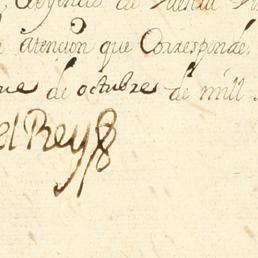 de
atencion que Corresponde,
de octubre de mill
el Rey